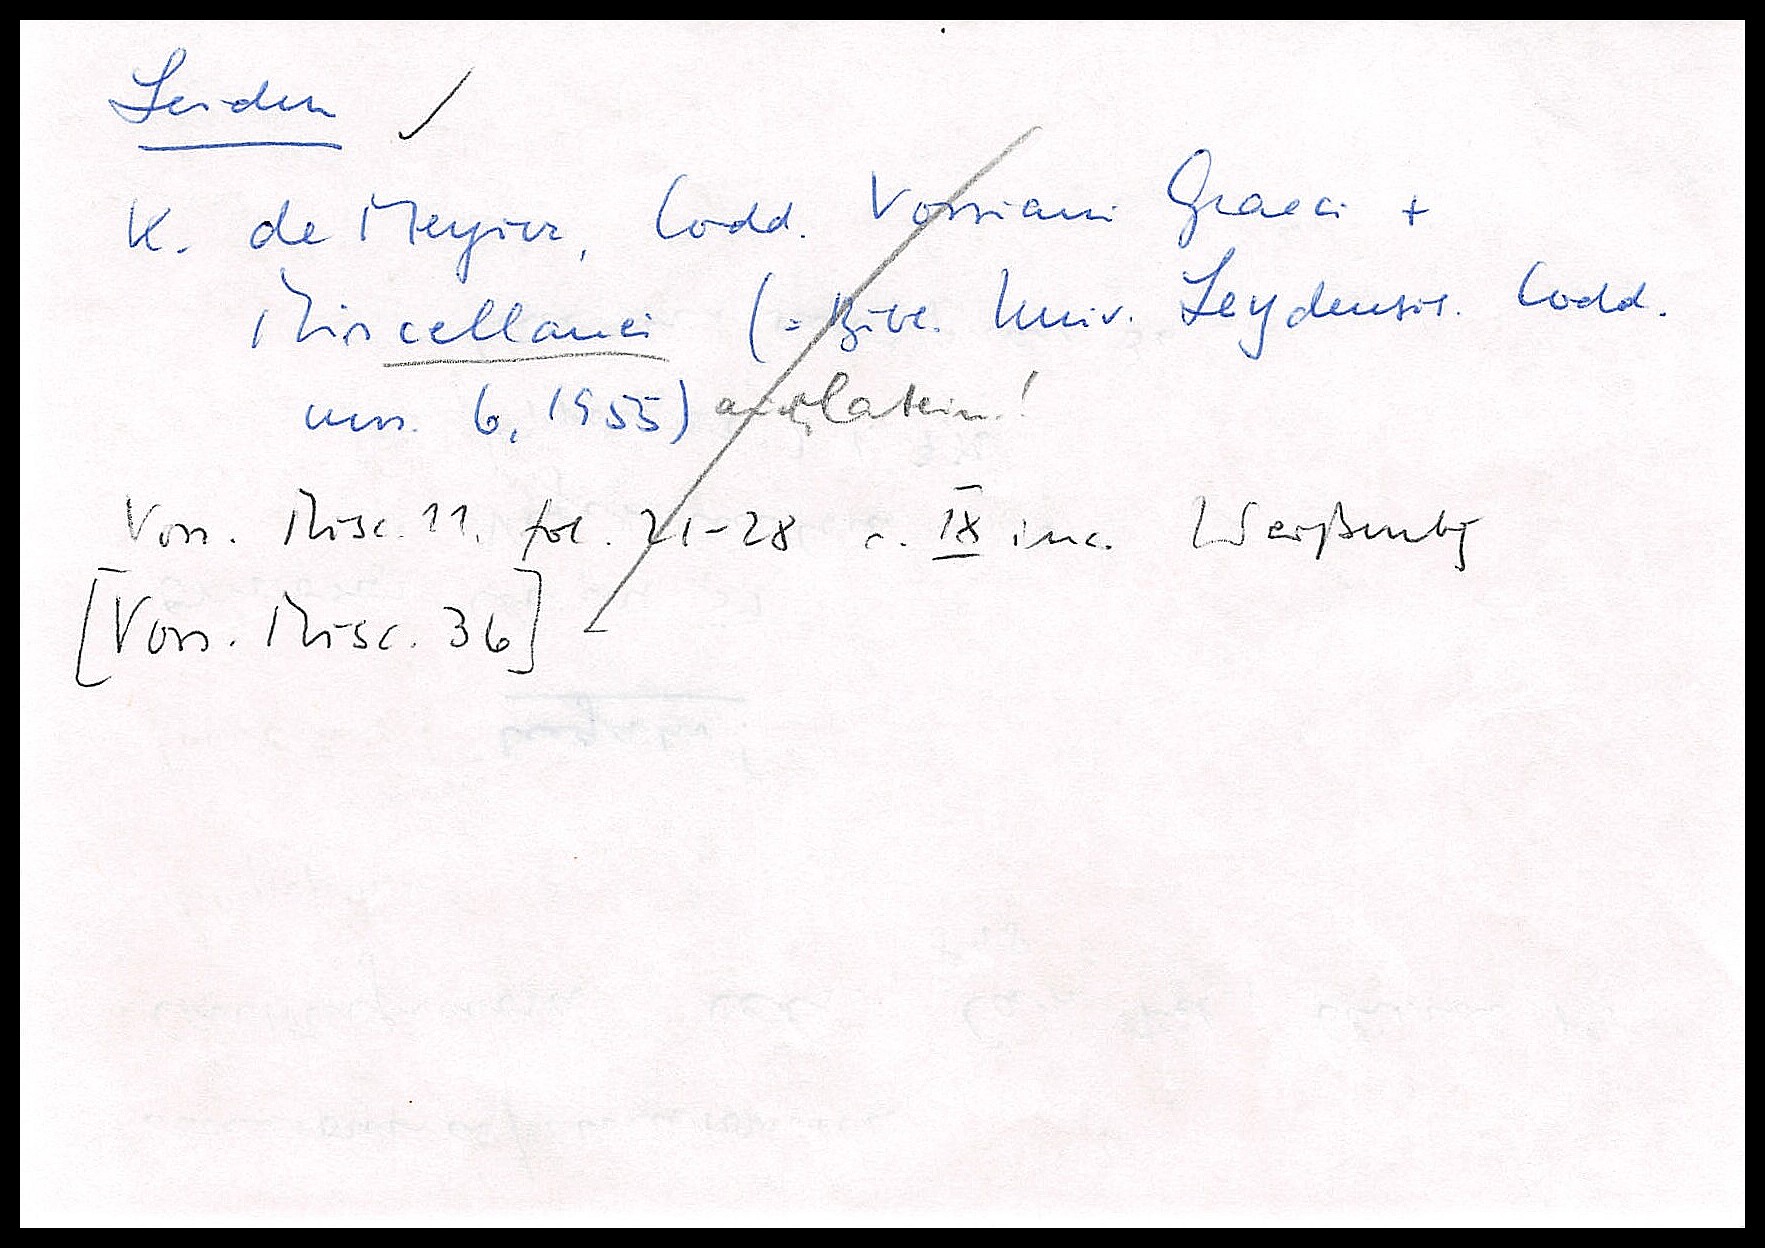 Leiden ✓
K. de Meyier, Codd. Vossiani Graeci +
Miscellanei (= Bibl. Univ. Leydensis. Codd.
mss. 6, 1955) auch latein.!
Voss. Misc. 11. fol. 21-28 s. IX inc. Weißenbg
[Voss. Misc. 36]